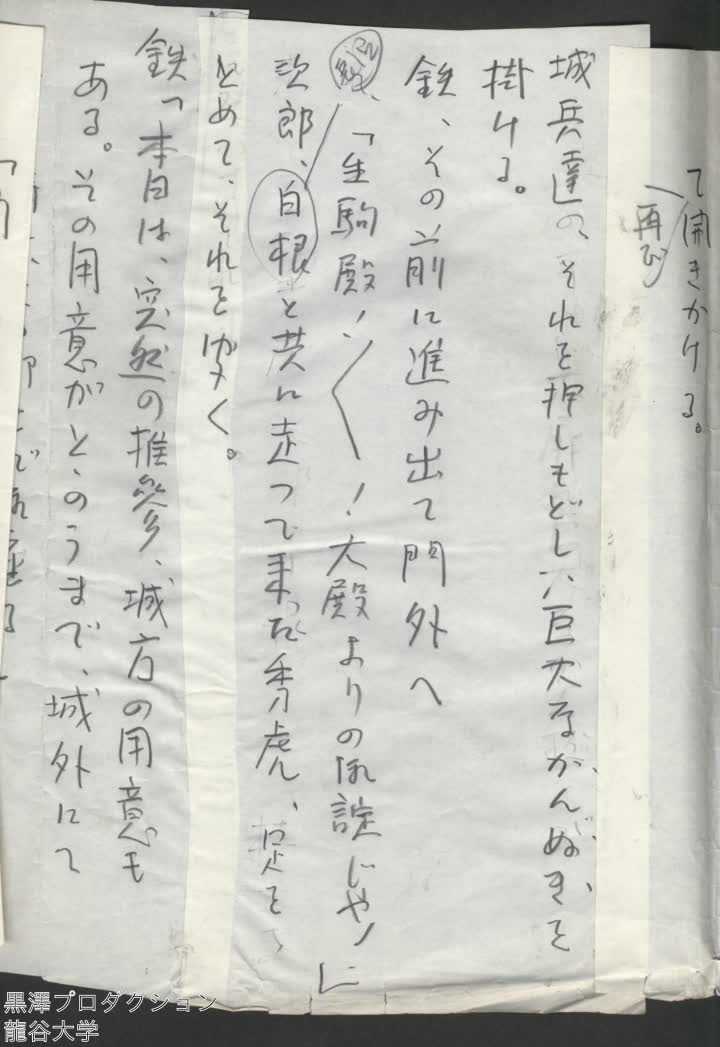 て開きかける。
再び
城兵達の、それを押しもどし、巨大なかんぬきを
掛ける。
鉄、その前に進み出て門外へ
「生駒殿！〱！大殿よりの御諚じゃ！」
次郎、白根と共に走って来た秀虎、足を
とめて、それを聞く。
鉄「本日は、突然の推参、城方の用意も
ある。その用意がとゝのうまで、城外にて
黒澤プロダクション
龍谷大学